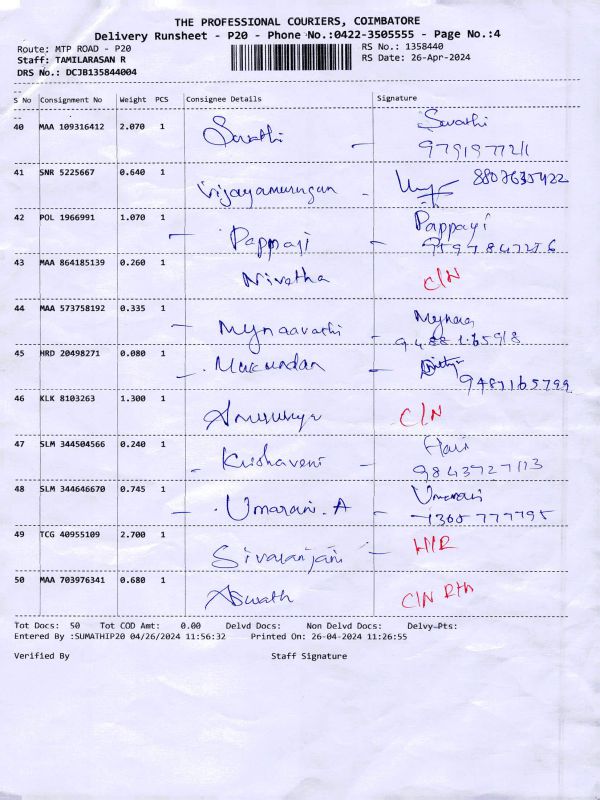 THE PROFESSIONAL COURIERS, COIMBATORE
Delivery Runsheet - P20 - Phone No.:0422-3505555 - Page No.:4
Route: MTP ROAD - P20 RS No.: 1358440
Staff: TAMILARASAN R RS Date: 26-Apr-2024
DRS No.: DCJB135844004
S No Consignment No Weight PCS Consignee Details Signature
40 MAA 109316412 2.070 1 Swathi Swathi
41 SNR 5225667 0.640 1 Vijayamurungan 8807635422
42 POL 1966991 1.070 1 Pappayi Pappayi
43 MAA 864185139 0.260 1 Nivetha C/N
44 MAA 573758192 0.335 1 Mynaavathi
45 HRD 20498271 0.080 1 Mukundan
9487165799
46 KLK 8103263 1.300 1 Anusuya C/N
47 SLM 344504566 0.240 1 Krishaveni Hari
48 SLM 344646670 0.745 1 Umarani.A Umarani
49 TCG 40955109 2.700 1 Sivaranjani
50 MAA 703976341 0.680 1 Aswath C/N Rtn
Tot Docs: 50 Tot COD Amt: 0.00 Delvd Docs: Non Delvd Docs: Delvy Pts:
Entered By :SUMATHIP20 04/26/2024 11:56:32 Printed On: 26-04-2024 11:26:55
Verified By Staff Signature